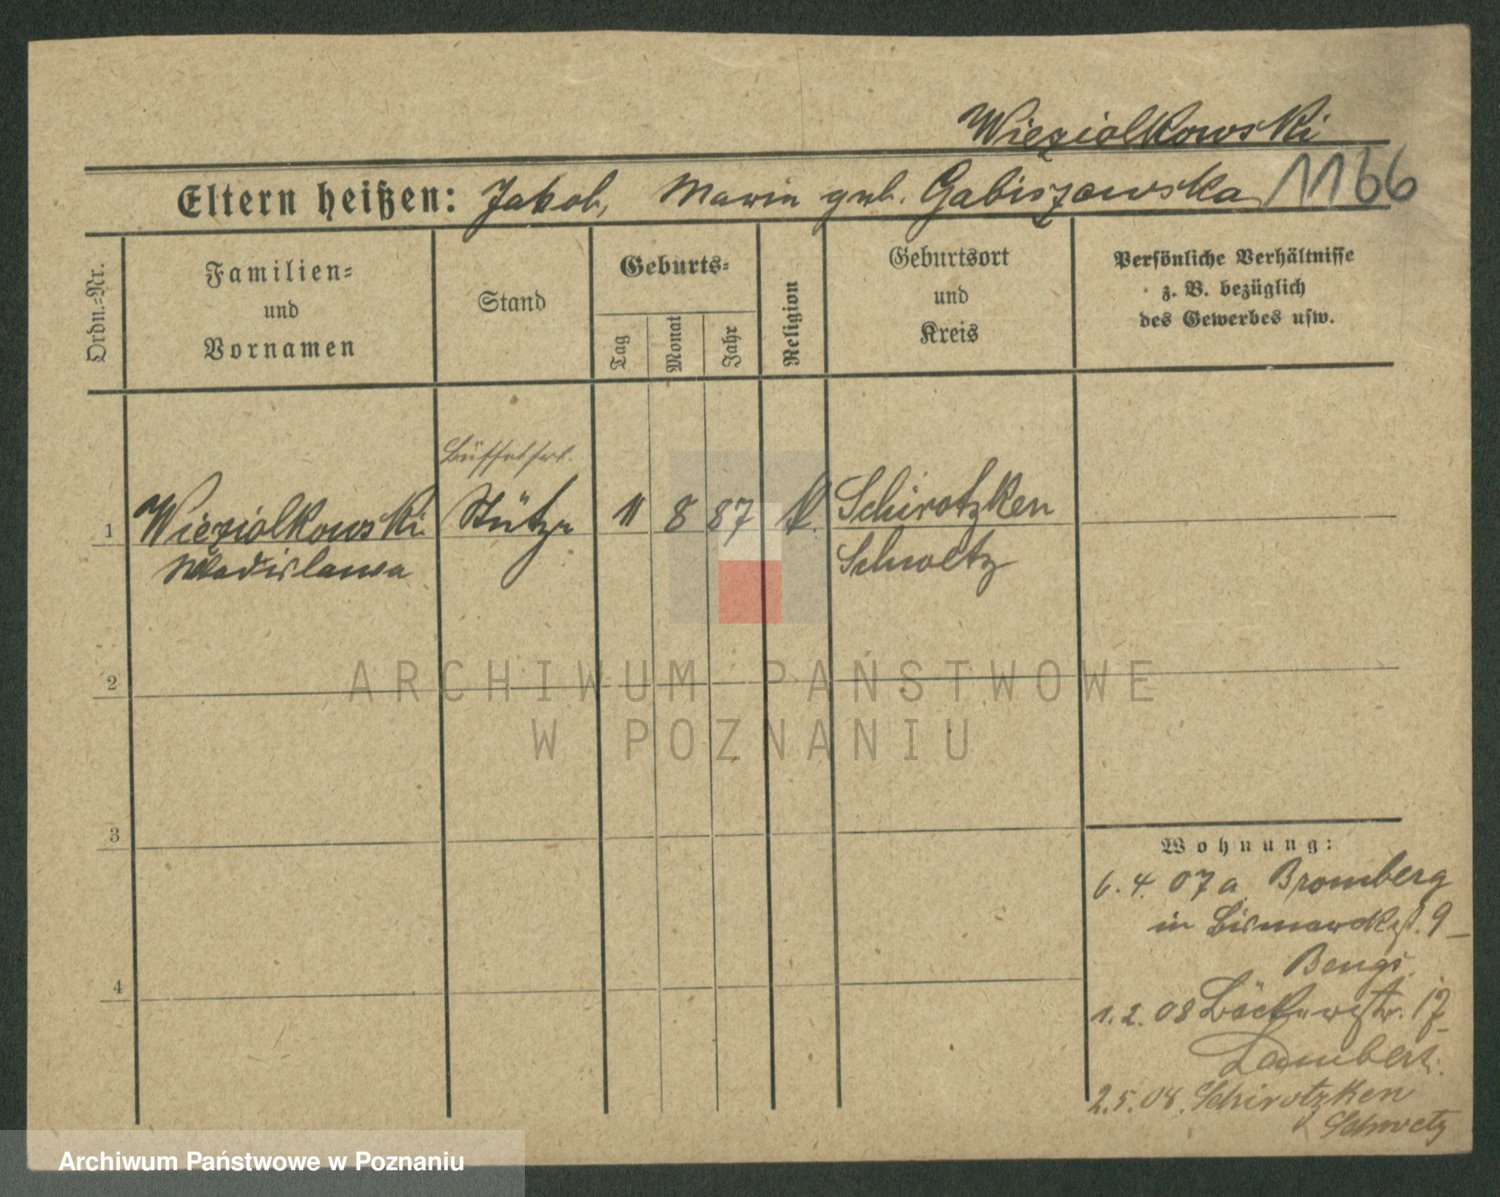 Wieziolkowski
Eltern heißen: Jakob, Maria geb. Gabiszowska 1166
Ordn.=Nr.
Familien=
und
Vornamen
Stand
Geburts=
Tag
Monat
Jahr
Religion
Geburtsort
und
Kreis
Persönliche Verhältnisse
z. B. bezüglich
des Gewerbes usw.
Büffetfrl.
1 Wieziolkowski Stütze 11 8 87 k. Schirotzken
Wladislawa Schwetz
2
3
4
Wohnung:
6.4.07 a Bromberg
in Bismarckst. 9
1.2.08 Bäckerstr. 17
Lambert.
2.5.08. Schirotzken
Schwetz
ARCHIWUM PAŃSTWOWE
W POZNANIU
Archiwum Państwowe w Poznaniu